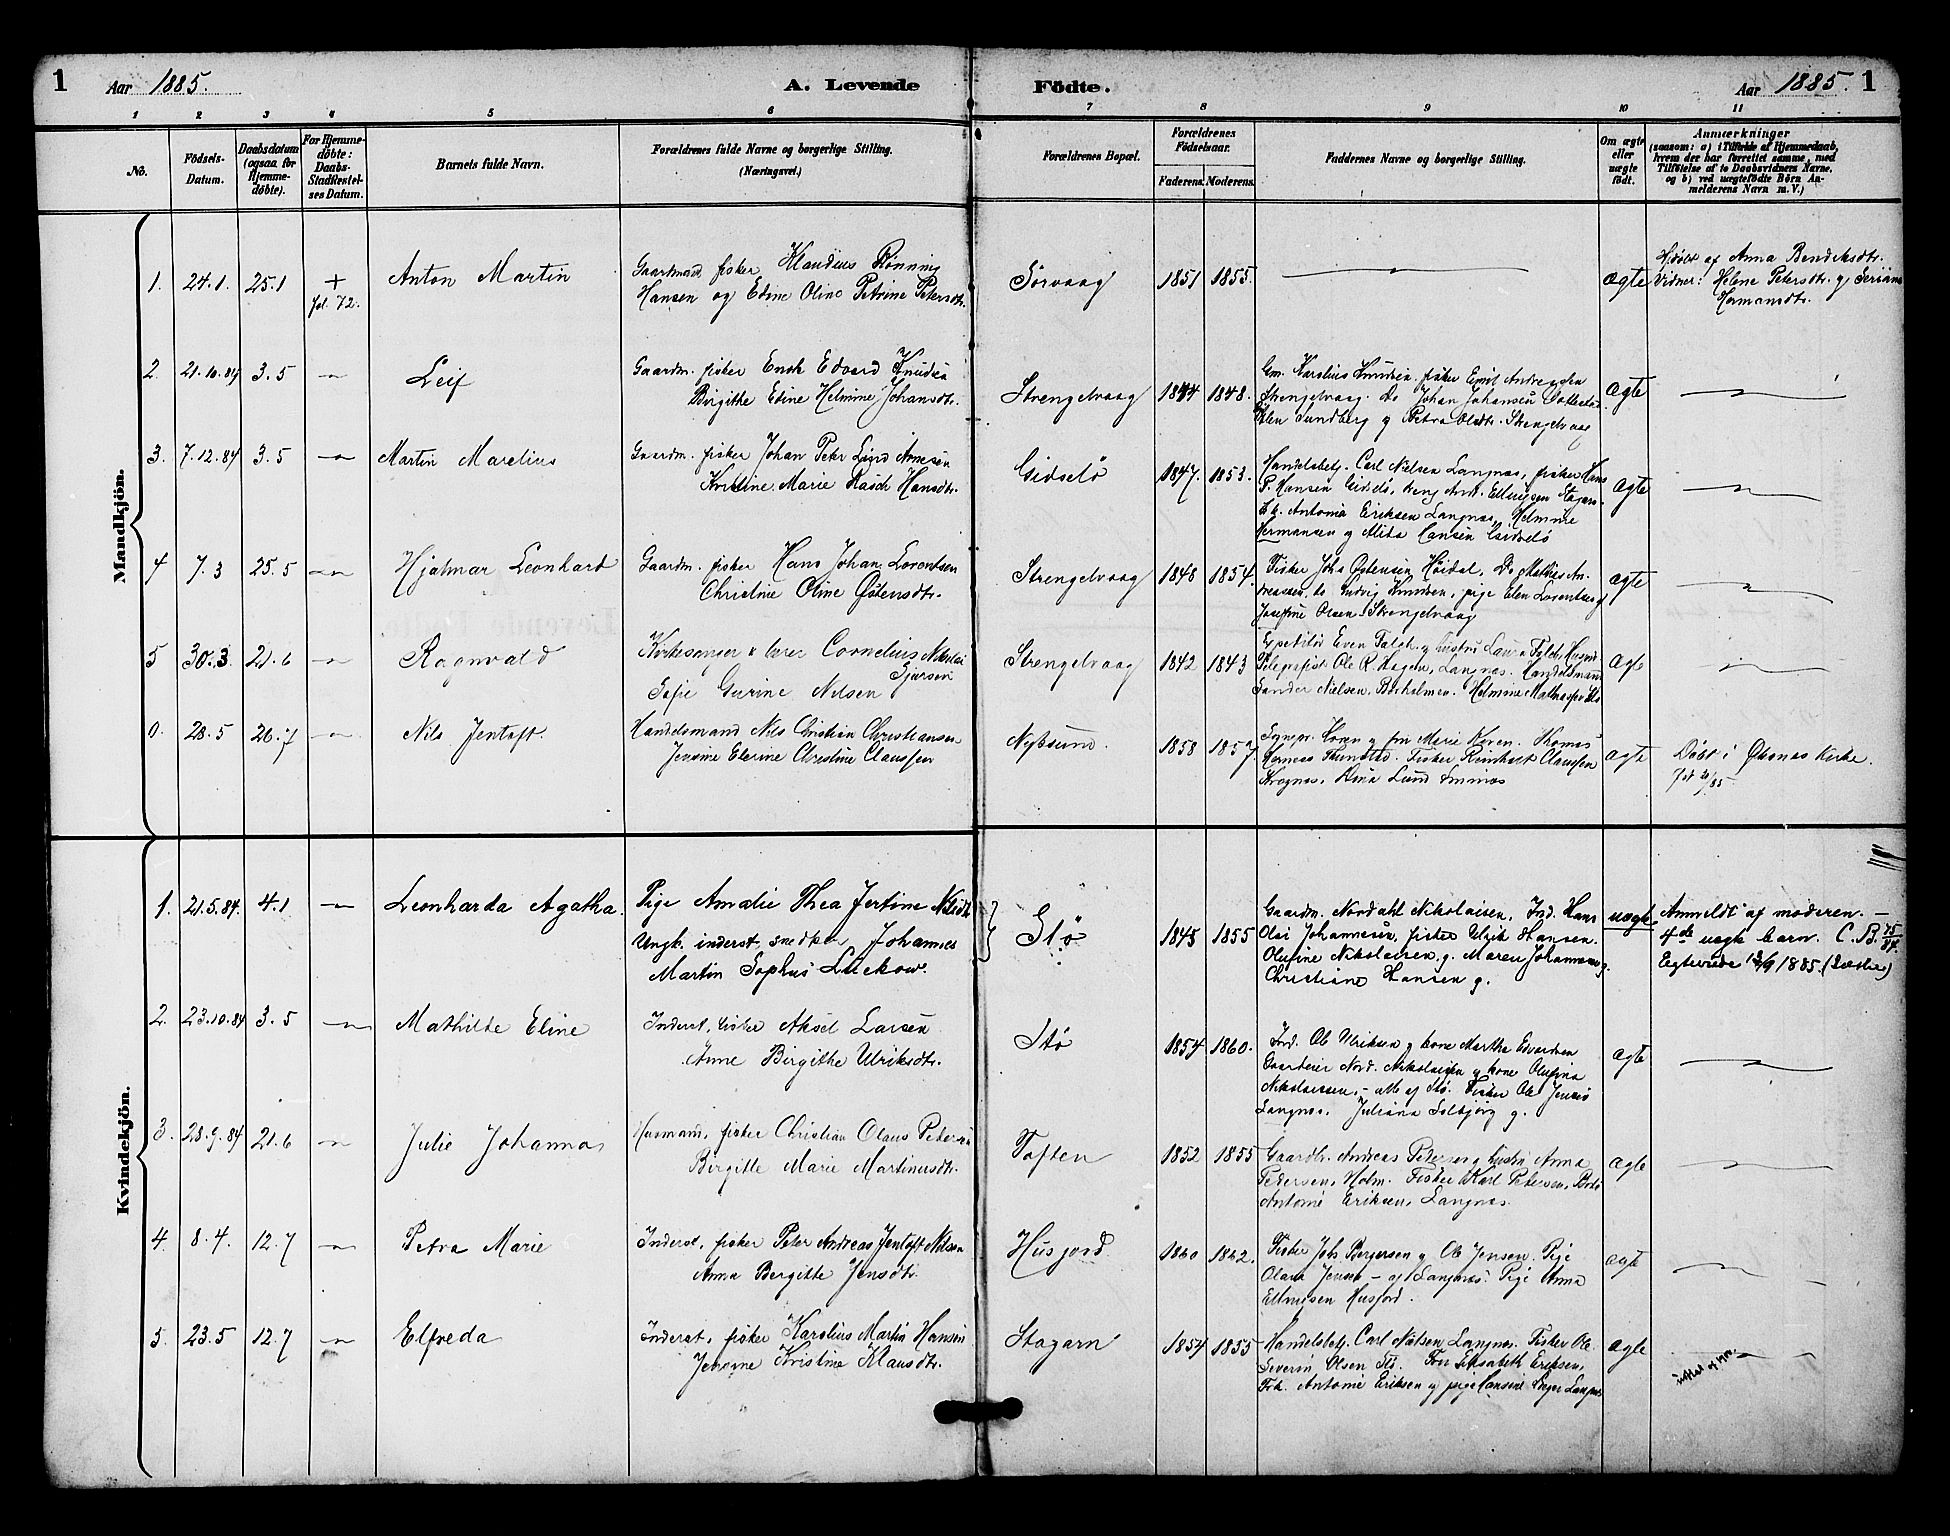 1 Aar 1885. A. Levende Födte. Aar 1885. 1
1 2 3 4 5 6 7 8 9 10 11
No.
Födsels-
Datum.
Daabsdatum
(ogsaa for
Hjemme-
döbte).
For Hjemme-
döbte:
Daabs-
Stadfæstel-
ses Datum.
Barnets fulde Navn.
Forældrenes fulde Navne og borgerlige Stilling.
(Næringsvei.)
Forældrenes Bopæl.
Forældrenes
Födselsaar.
Faderens. Moderens.
Faddernes Navne og borgerlige Stilling.
Om ægte
eller
uægte
födt.
Anmærkninger
(saasom: a) i Tilfælde af Hjemmedaab,
hvem der har forrettet samme, med
Tilföielse af to Daabsvidners Navne,
og b) ved uægtefödte Börn An-
melderens Navn m. V.)
Mandkjön.
1. 24.1. 25.1 + Anton Martin
fol. 72.
Gaardmand fisker Klaudius Rønning
Hansen og Edine Oline Petrine Petersdtr.
Sørvaag 1851 1855. ægte
Hjdøbt af Anna Bendiksdtr.
Vidner: Helene Petersdtr. og
Hermansdtr.
2. 21.10.84 3.5 Leif
Gaardm. fisker Enok Edvard Knudsen
Birgithe Edine Helmine Johansdtr.
Strengelvaag 1844 1848.
Gm. Karolius Knudsen fisker Emil Andreassen
Strengelvaag. Do Johan Johansen
Elen Sundberg og Petra Olsdtr. Strengelvaag
ægte
3. 7.12.84 3.5 Martin Marelius
Gaardm. fisker Johan Peter Lund Arnesen
Kristine Marie Rasch Hansdtr.
Gidselø 1847. 1853.
Handelsbetj. Carl Nielsen Langnæs, fisker Hans
P. Hansen Gidselø, dreng Andr. Ellingsen Stagarn
Antonie Eriksen Langnæs, Helmine
Hermansen og Alida Hansen Gidselø
ægte
4 7.3 25.5 Hjalmar Leonhard
Gaardm. fisker Hans Johan Lorentsen
Christine Oline Østensdtr.
Strengelvaag 1848 1854.
Fisker Johs Østensen Høidal, Do Mathis An-
dreassen, do Ludvig Knudsen, pige Elen Lorentsen og
Josefine Olsen Strengelvaag
ægte
5 30.3. 21.6 Ragnvald
Kirkesanger & lærer Cornelius Nikolai
Sjursen
Sofie Gurine Nilsen
Strengelvaag 1842 1843
Expeditør Even Falch og hustru Laura Falch,
Telegrafist Ole R. Hagen, Langnæs. Handelsmand
Sander Nielsen, Barholmen. Helmine Mathiassen Stø
ægte
28.5 26.7 Nils Jentoft.
Handelsmand Nils Christian Christiansen
Jensine Elerine Christine Claussen
Nyksund. 1858 1857.
Sognpr. Koren og fru Marie Koren. Thomas
Tunstad. Fisker Reinholt Claussen
Skognæs, Dina Lund
ægte
Døbt i Øksnæs Kirke.
Kvindekjön.
1. 21.5.84. 4.1 Leonharda Agatha.
Pige Amalie Thea Jertine Nilsdtr.
Ungk. inderst, snedker Johannes
Martin Sophus Lückow.
Stø 1845 1855
Gaardm. Nordahl Nikolaisen, Ind. Hans
Olai Johannesen, fisker Ulrik Hansen.
Olufine Nikolaisen g. Maren Johannesen g.
Christiane Hansen g.
uægte
Anmeldt af moderen. –
4de uægte barn. C.B. 75/84.
Egteviede 13/9 1885.
2. 23.10.84 3.5 Mathilde Eline
Inderst, fisker Aksel Larsen
Anne Birgithe Ulriksdtr.
Stø 1854 1860.
Ind. Ole Ulriksen og kone Martha Edvardsen
Gaardeier Nord. Nikolaisen og kone Olufina
Nikolaissen, – alle af Stø. Fisker Ole Jensen
Langnæs, Juliana Solbjørg g.
ægte
3. 28.9.84 21.6 Julie Johanna
Husmand, fisker Christian Olaus Petersen
Birgitte Marie Martinusdtr.
Toften 1852 1855
Gaardbr. Andreas Petersen og hustru Anna
Pedersen, Holm. Fisker Karl Petersen,
Antonie Eriksen, Langnæs.
ægte
4. 8.4. 12.7 Petra Marie
Inderst, fisker Peter Andreas Jentoft Nilsen
Anna Bergitte Jensdtr.
Husjord 1860 1862.
Fisker Joh. Bergersen og Ole Jensen. Pige
Olava Jensen – af Langnæs. Pige Anna
Ellingsen Husjord.
ægte
5. 23.5 12.7 Elfreda
Inderst, fisker Karolius Martin Hansen
Jensine Kristine Klausdtr.
Stagarn 1854 1855
Handelsbetj. Carl Nielsen Langnæs. Fisker Ole
Severin Olsen Stø. Fru Elisabeth Eriksen,
Frk. Antonie Eriksen og pige Hansine Langnæs
ægte